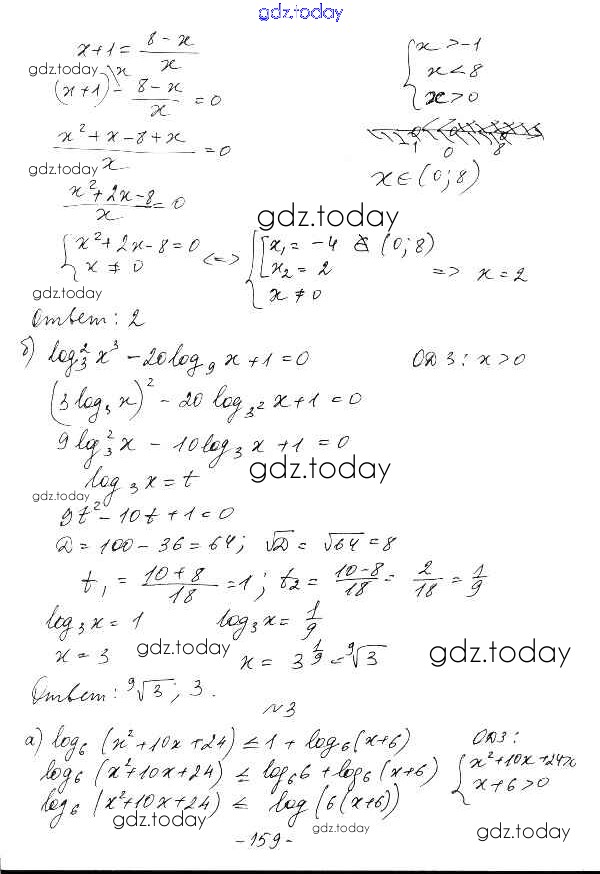 gdz.today
x+1 = (8-x)/x
{ x > -1
gdz.today
x < 8
x > 0
(x+1)^x - (8-x)/x = 0
(x² + x - 8 + x)/x = 0
-1 0 8
gdz.today
x ∈ (0; 8)
(x² + 2x - 8)/x = 0
gdz.today
{ x² + 2x - 8 = 0 <=> { [ x₁ = -4 ∉ (0; 8)
x ≠ 0 x₂ = 2 => x = 2
x ≠ 0
gdz.today
Ответ: 2
б) log₃² x³ - 20 log₉ x + 1 = 0 ОДЗ: x > 0
(3 log₃ x)² - 20 log₃² x + 1 = 0
9 log₃² x - 10 log₃ x + 1 = 0
gdz.today
log₃ x = t
gdz.today
9t² - 10t + 1 = 0
D = 100 - 36 = 64; √D = √64 = 8
t₁ = (10+8)/18 = 1; t₂ = (10-8)/18 = 2/18 = 1/9
log₃ x = 1 log₃ x = 1/9
gdz.today
x = 3 x = 3^(1/9) = ⁹√3
gdz.today
Ответ: ⁹√3; 3.
№3
а) log₆ (x² + 10x + 24) ≤ 1 + log₆ (x+6) ОДЗ:
log₆ (x² + 10x + 24) ≤ log₆ 6 + log₆ (x+6) { x² + 10x + 24 >
x + 6 > 0
log₆ (x² + 10x + 24) ≤ log (6(x+6))
gdz.today
gdz.today
gdz.today
-159-